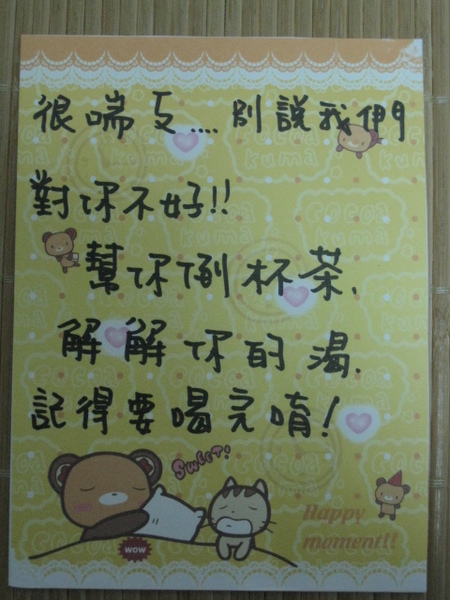 很喘ㄎ....別說我們
對你不好!!
幫你倒杯茶.
解解你的渴.
記得要喝完唷!
Sweet!
wow
Happy
moment!!